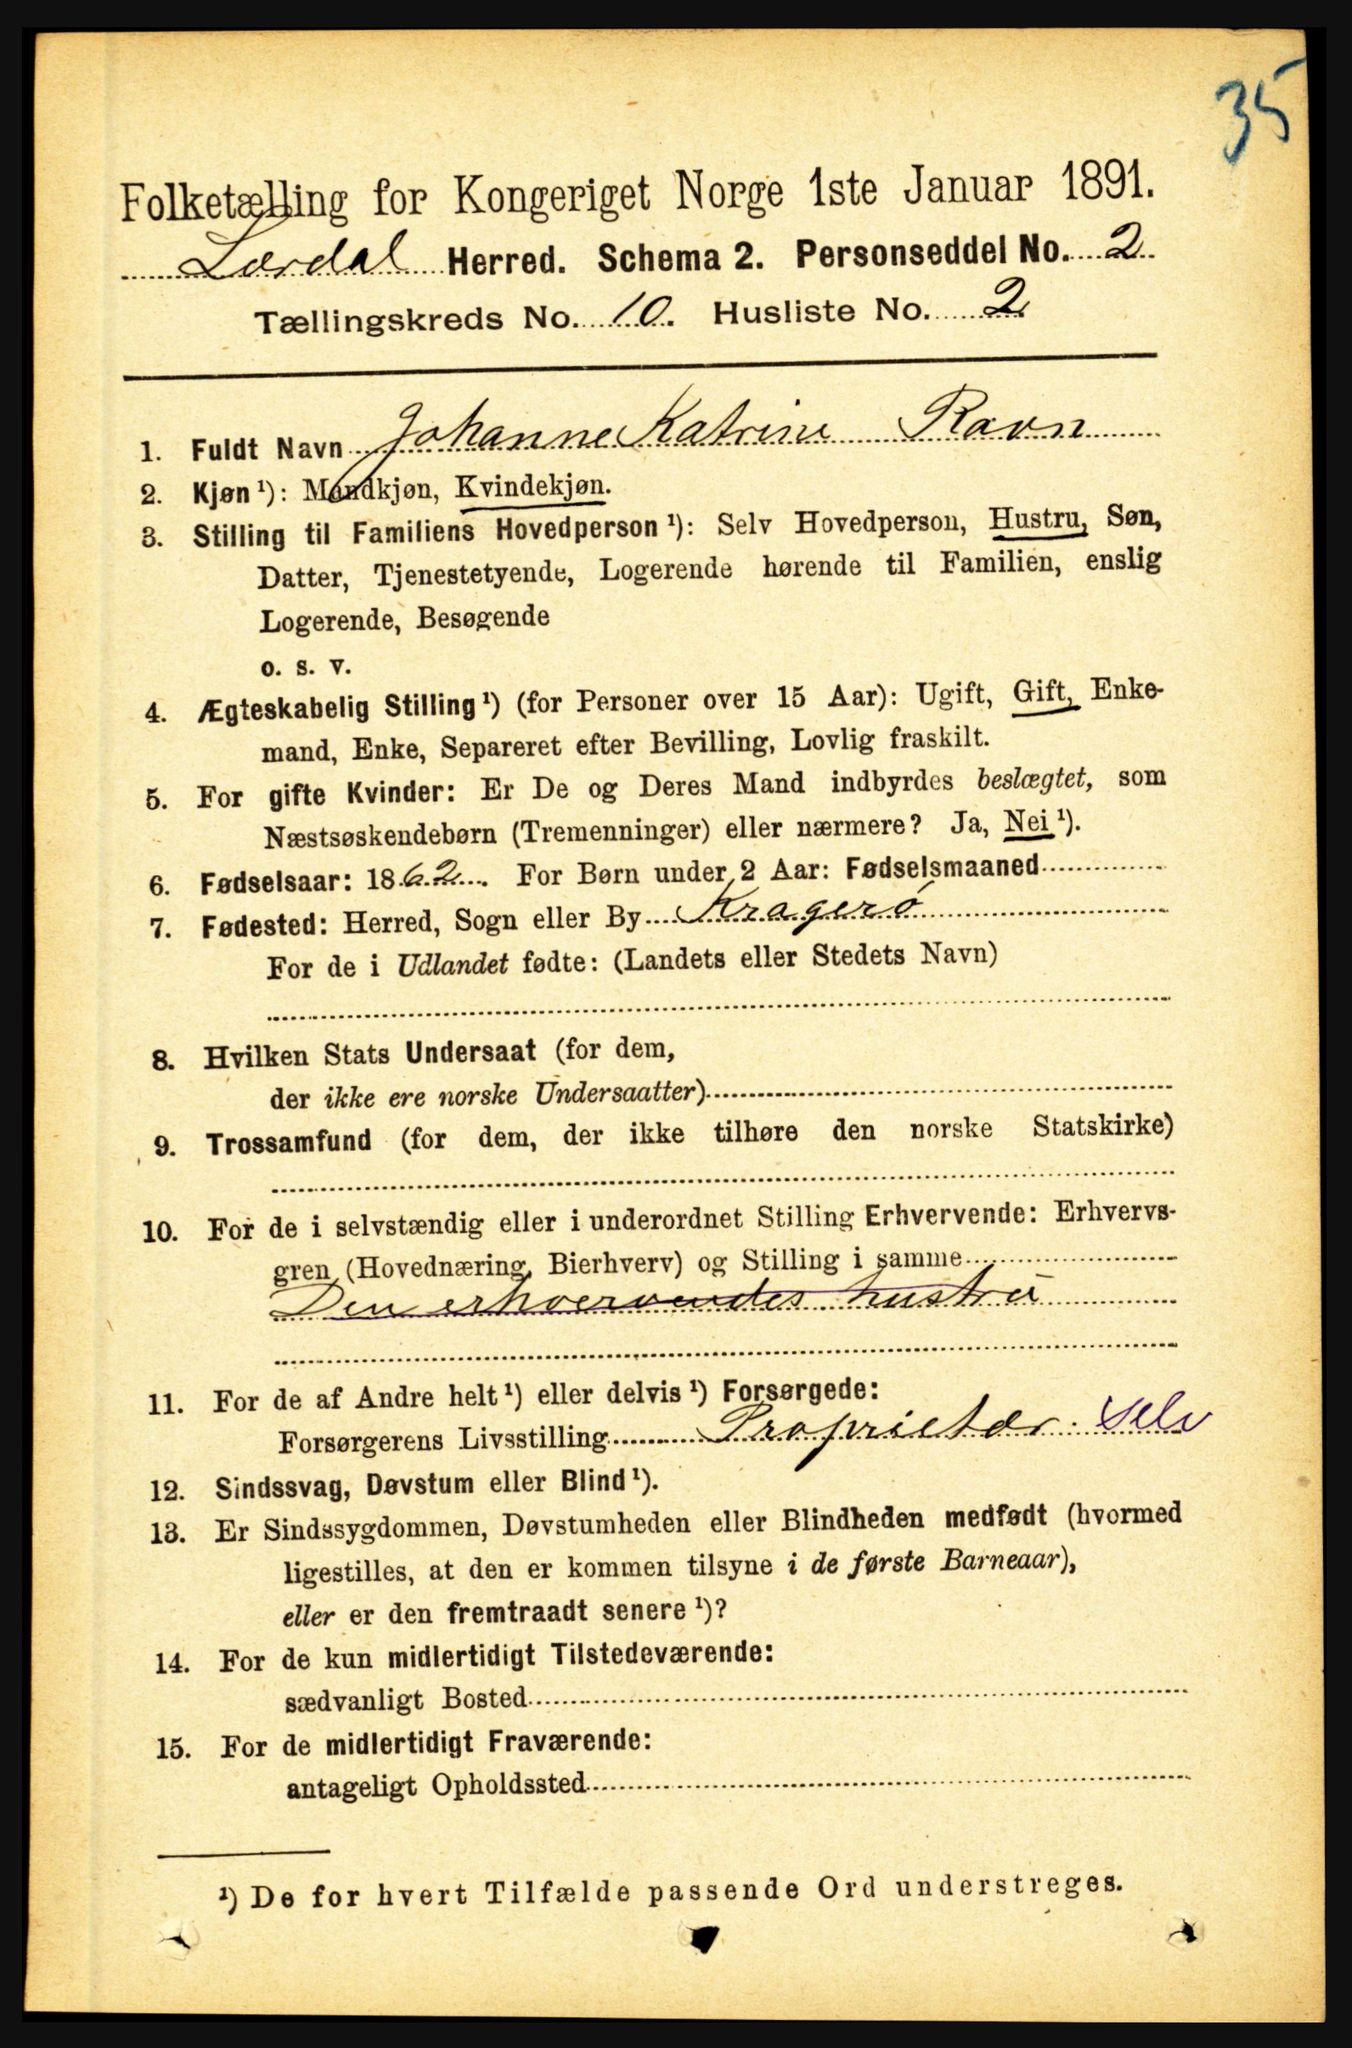 35
Folketælling for Kongeriget Norge 1ste Januar 1891.
Lærdal Herred. Schema 2. Personseddel No. 2
Tællingskreds No. 10. Husliste No. 2
1. Fuldt Navn Johanne Katrine Ravn
2. Kjøn ¹): Mandkjøn, Kvindekjøn.
3. Stilling til Familiens Hovedperson ¹): Selv Hovedperson, Hustru, Søn,
Datter, Tjenestetyende, Logerende hørende til Familien, enslig
Logerende, Besøgende
o. s. v.
4. Ægteskabelig Stilling ¹) (for Personer over 15 Aar): Ugift, Gift, Enke-
mand, Enke, Separeret efter Bevilling, Lovlig fraskilt.
5. For gifte Kvinder: Er De og Deres Mand indbyrdes beslægtet, som
Næstsøskendebørn (Tremenninger) eller nærmere? Ja, Nei ¹).
6. Fødselsaar: 1862. For Børn under 2 Aar: Fødselsmaaned
7. Fødested: Herred, Sogn eller By Kragerø
For de i Udlandet fødte: (Landets eller Stedets Navn)
8. Hvilken Stats Undersaat (for dem,
der ikke ere norske Undersaatter)
9. Trossamfund (for dem, der ikke tilhøre den norske Statskirke)
10. For de i selvstændig eller i underordnet Stilling Erhvervende: Erhvervs-
gren (Hovednæring, Bierhverv) og Stilling i samme
Den erhvervendes hustru
11. For de af Andre helt ¹) eller delvis ¹) Forsørgede:
Forsørgerens Livsstilling Proprietær. Selv
12. Sindssvag, Døvstum eller Blind ¹).
13. Er Sindssygdommen, Døvstumheden eller Blindheden medfødt (hvormed
ligestilles, at den er kommen tilsyne i de første Barneaar),
eller er den fremtraadt senere ¹)?
14. For de kun midlertidigt Tilstedeværende:
sædvanligt Bosted
15. For de midlertidigt Fraværende:
antageligt Opholdssted
¹) De for hvert Tilfælde passende Ord understreges.